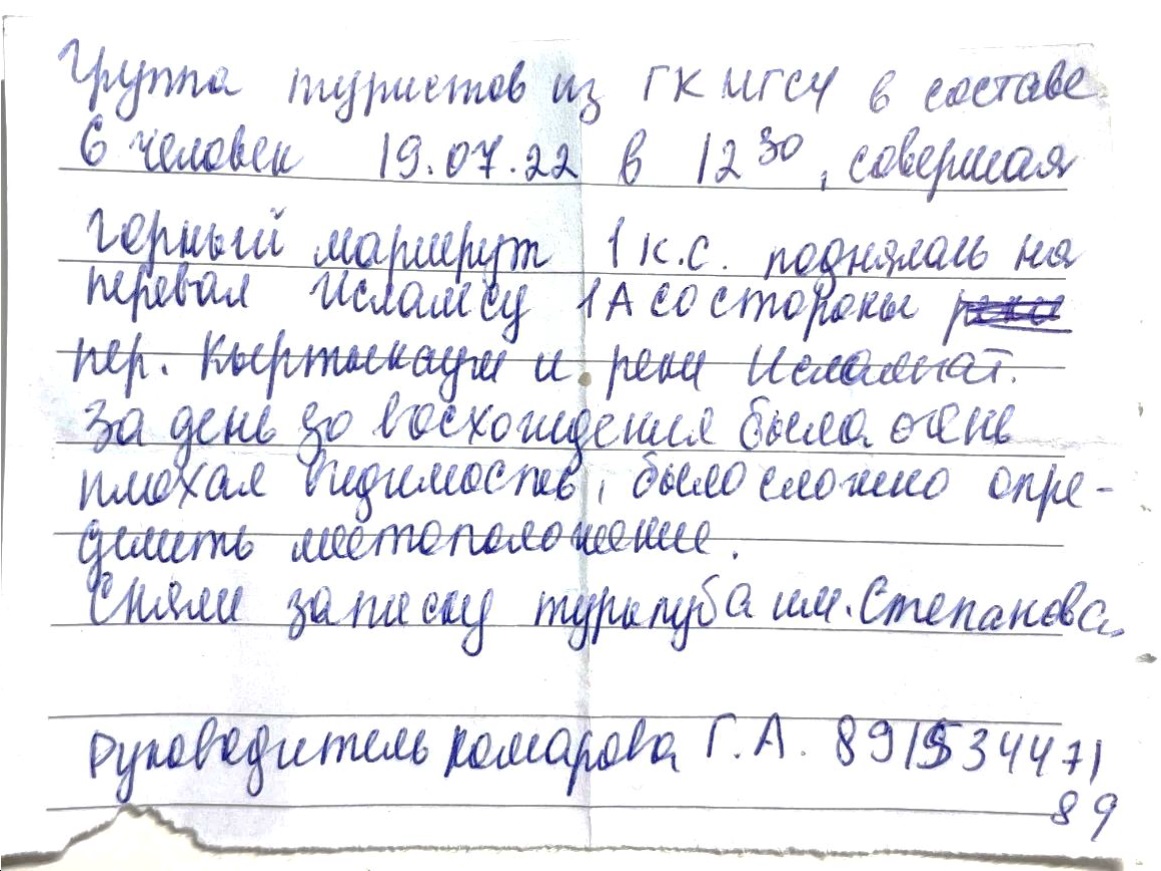 Группа туристов из ГК МГСУ в составе
6 человек 19.07.22 в 12 30, совершая
горный маршрут 1 к.с. поднялась на
перевал Исламсу 1А со стороны
пер. Кыртыкауш и реки Исламчат.
За день до восхождения была очень
плохая видимость, было сложно опре-
делить местоположение.
Сняли записку турклуба им. Степанова.
Руководитель Комарова Г.А. 8915534471
89